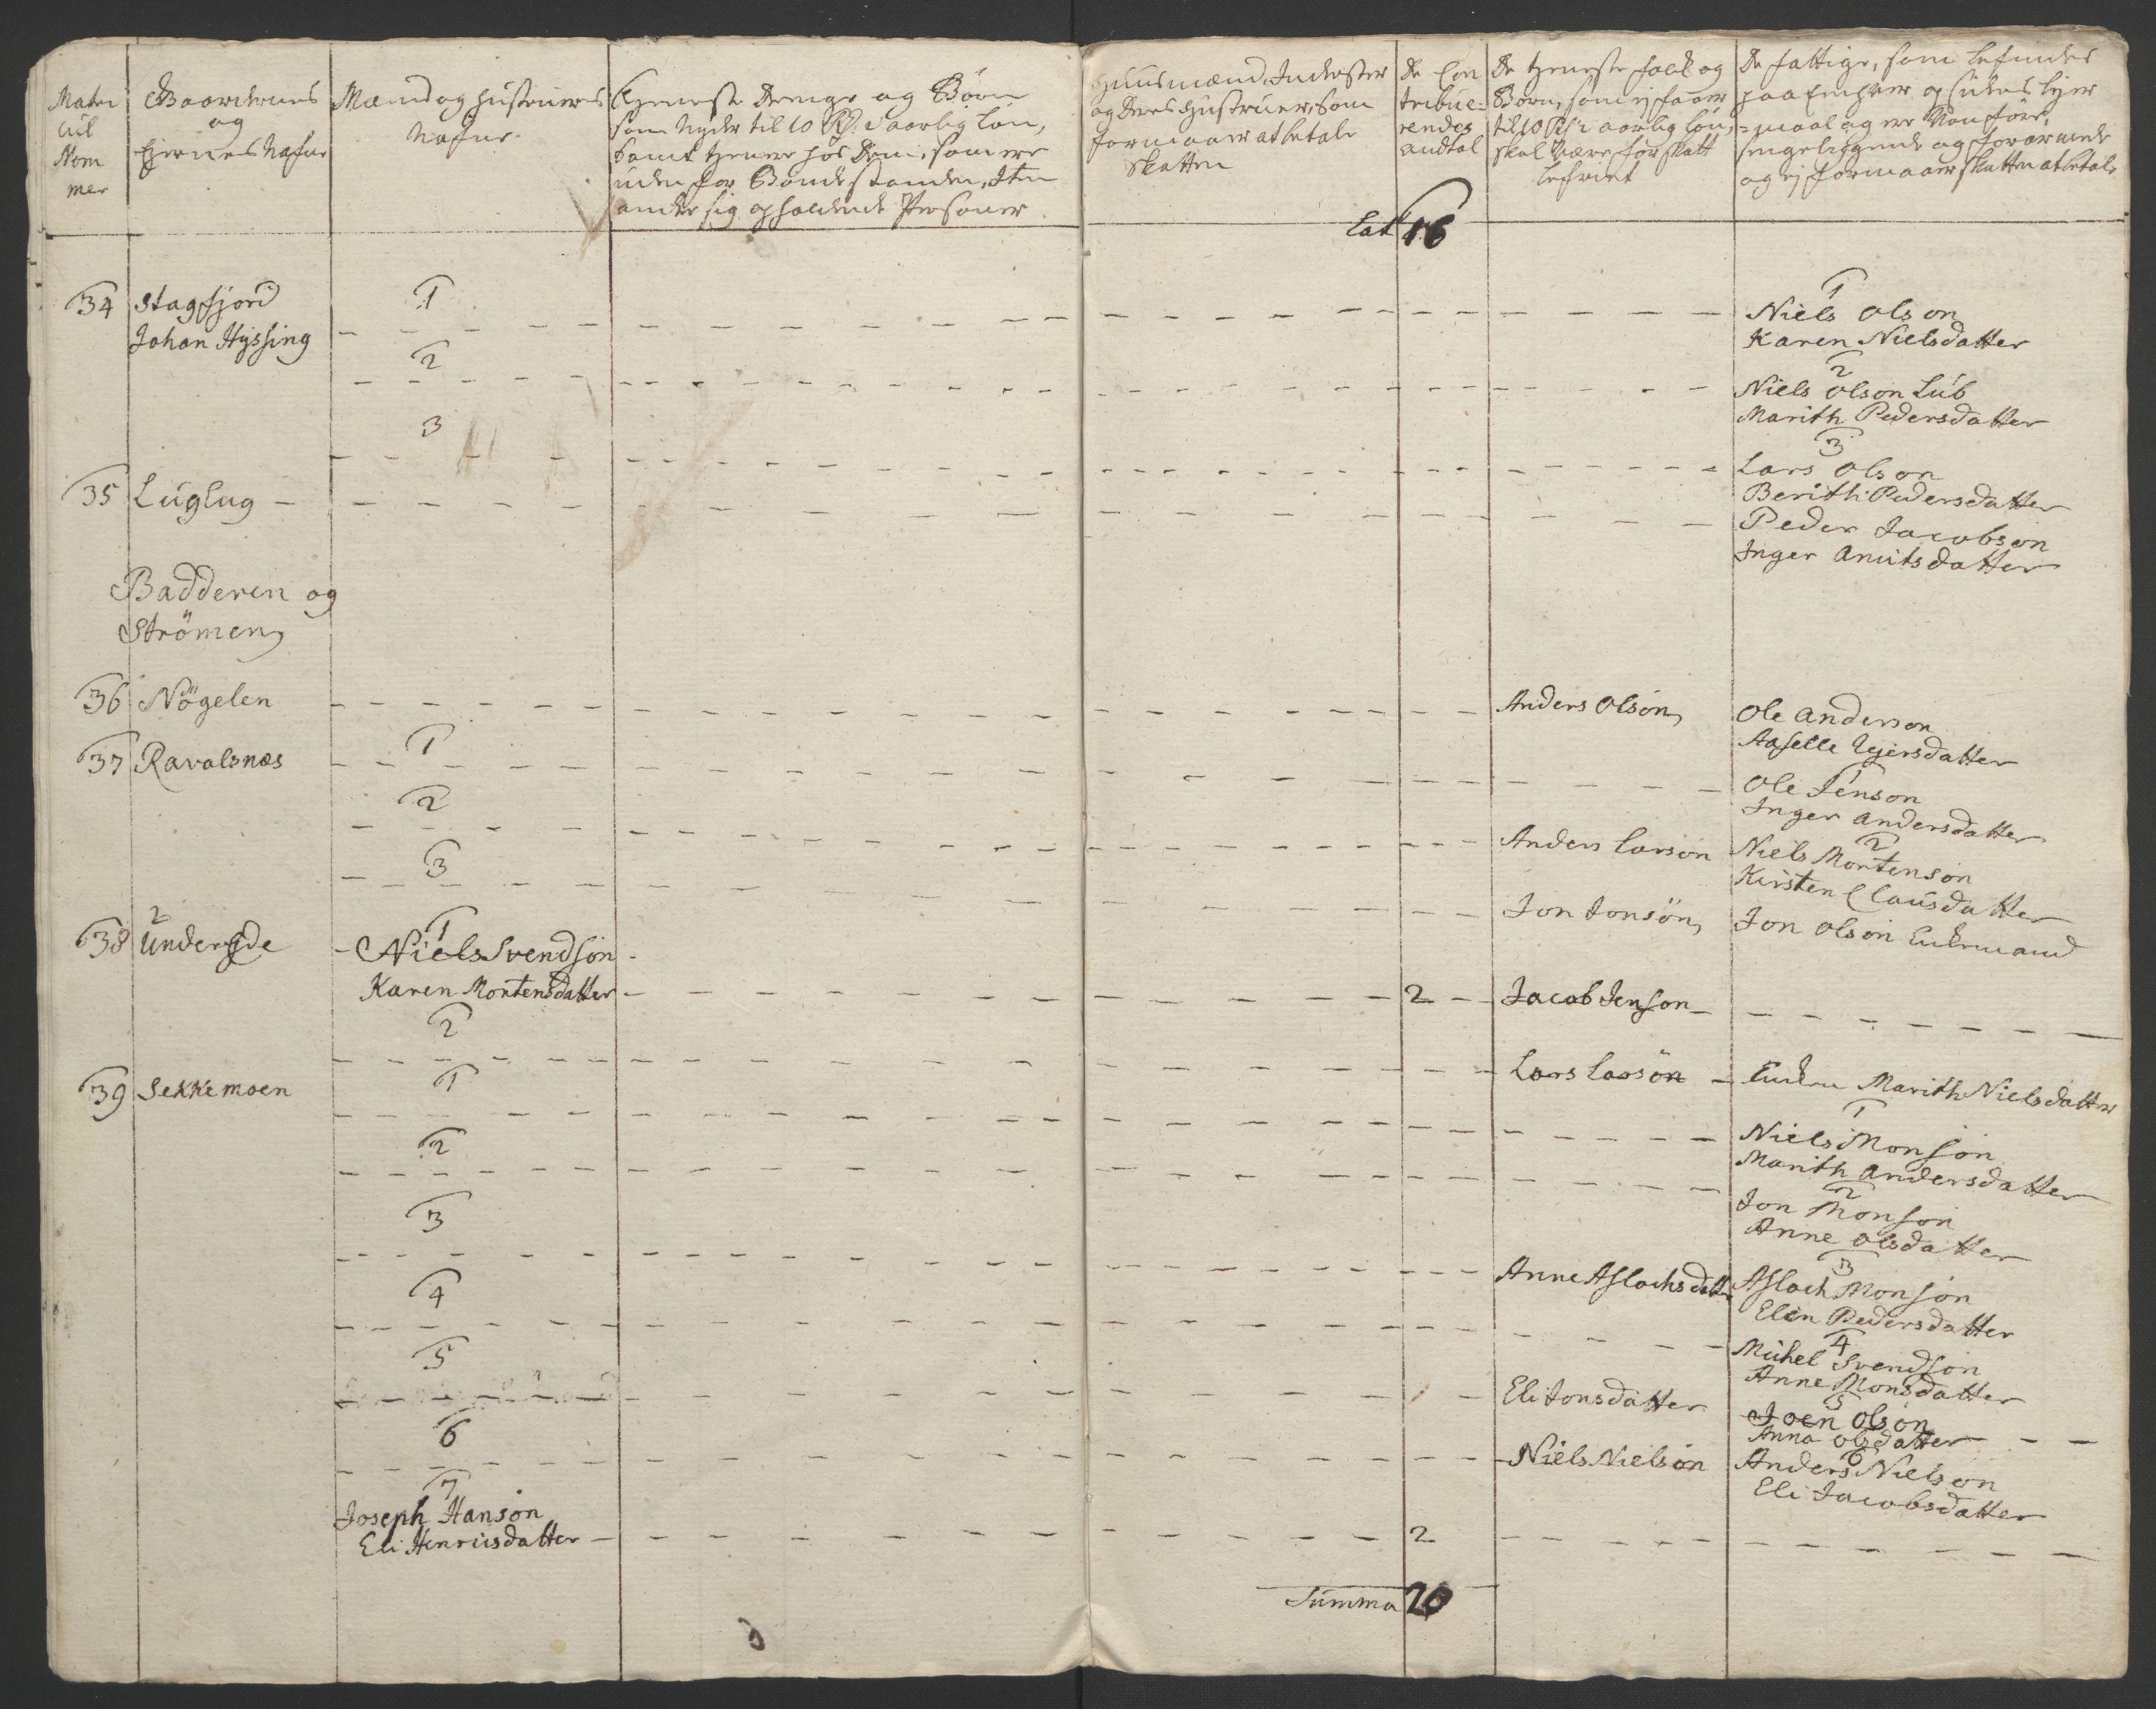 Matri
cul
Nom
mer
Gaardernes
og
Ejernes Nafne
Mænd og Hustruers
Nafne.
Tieneste Drenge og Börn
som nyder til 10 Rdr. aarlig Lön,
samt tiener hos dem, som ere
uden for Bondestanden, Item
andre sig opholdende Personer
Huusmænd, Inderster
og deres Hustruer, som
formaaer at betale
Skatten
De Con
tribue-
rendes
andtal
De tieneste folk og
Börn, som ej faaer
til 10 Rdr aarlig lön,
skal være for skatt
befriet
De fattige, som befindes
paa
og ere Vanföre,
sengeliggende og forarmede
og ej formaaer skatten at betale
Lat 16
34 Stagfjord 1
Johan Hysing
1
Niels Olson
Karen Nielsdatter
2
2
Niels Olson Lüb
Marith Pedersdatter
3
3
Lars Olson
Berith Pedersdatter
35 Luglug
Peder Jacobson
Inger Anutsdatter
Badderen og
Strömen
36 Nögelen
Anders Olsön
Ole Anderson
Aaselle Ugersdatter
37 Ravalsnæs 1
1
Ole Jenson
Inger Andersdatter
2
Anders Larson
2
Niels Mortenson
Kirsten Clausdatter
3
Jon Jonsön
Jon Olson Enkemand
2
38 Underejde
1
Niels Svendsön
Karen Mortensdatter 2
Jacob Jenson
2
Lars Larsön
Enken Marith Nielsdatter
39 Sekkemoen 1
1
Niels Monsön
Marith Andersdatter
2
2
Jon Monsön
Anne Olsdatter
3
Anne Aslachsdatter
3
Aslach Monsön
Elen Pedersdatter
4
4
Michel Svendsön
Anne Monsdatter
5
Eli Jonsdatter
5
Joen Olsön
Anna Olsdatter
6
Niels Nielsön
6
Anders Nielson
Eli Jacobsdatter
7
Joseph Hanson
Eli Henricsdatter 2
Summa 20